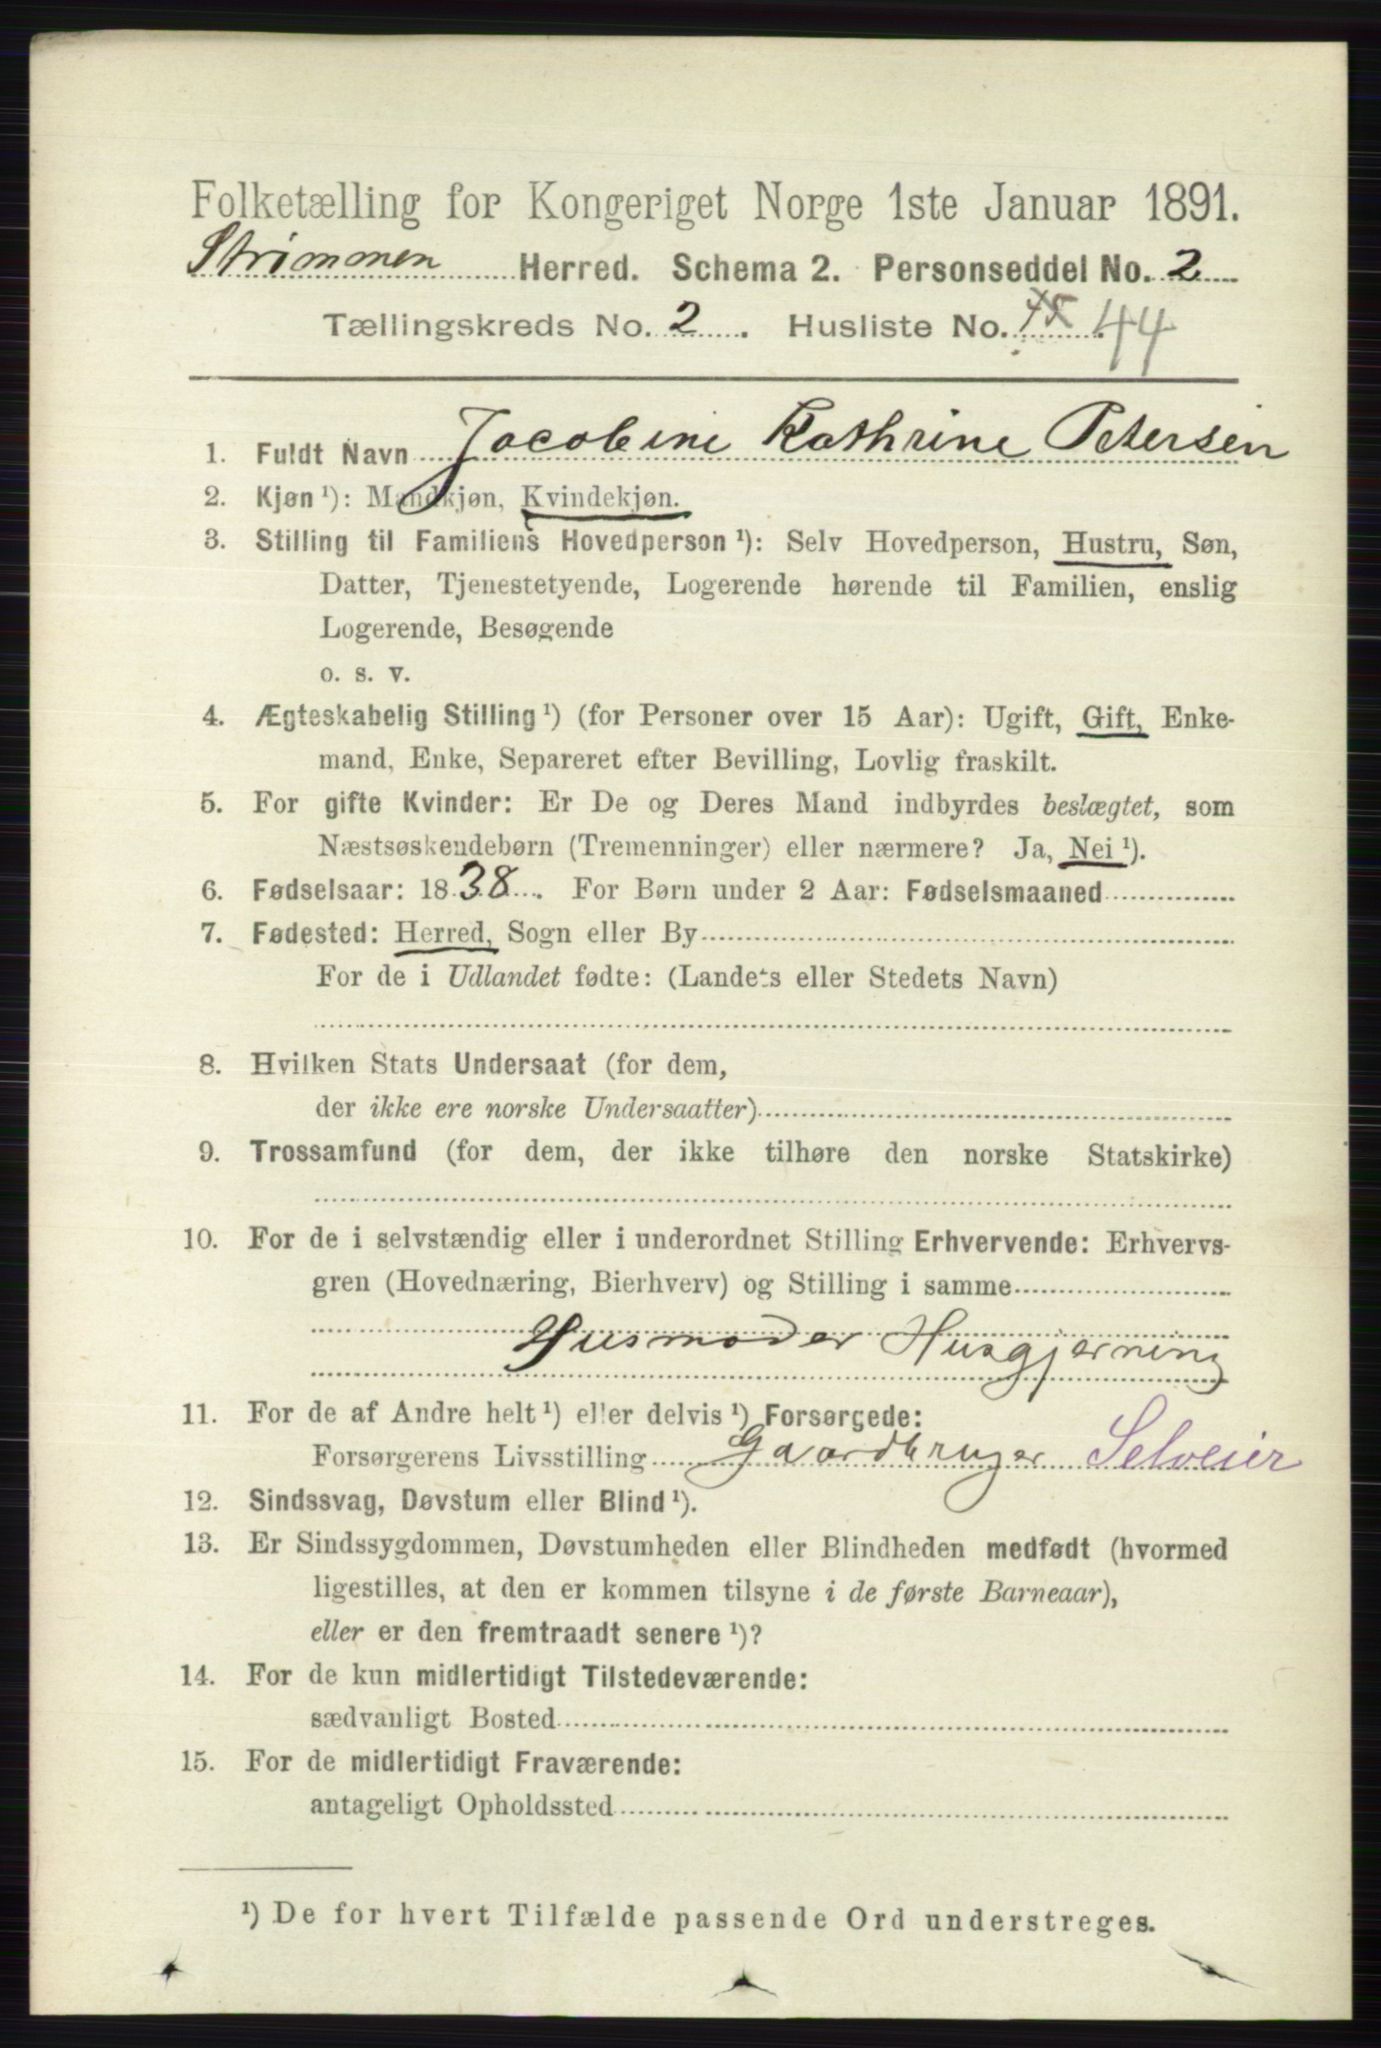 Folketælling for Kongeriget Norge 1ste Januar 1891.
Strømmen Herred. Schema 2. Personseddel No. 2
Tællingskreds No. 2. Husliste No. 44
1. Fuldt Navn Jacobine Kathrine Petersen
2. Kjøn ¹): Mandkjøn, Kvindekjøn.
3. Stilling til Familiens Hovedperson ¹): Selv Hovedperson, Hustru, Søn,
Datter, Tjenestetyende, Logerende hørende til Familien, enslig
Logerende, Besøgende
o. s. v.
4. Ægteskabelig Stilling ¹) (for Personer over 15 Aar): Ugift, Gift, Enke-
mand, Enke, Separeret efter Bevilling, Lovlig fraskilt.
5. For gifte Kvinder: Er De og Deres Mand indbyrdes beslægtet, som
Næstsøskendebørn (Tremenninger) eller nærmere? Ja, Nei ¹).
6. Fødselsaar: 1838. For Børn under 2 Aar: Fødselsmaaned
7. Fødested: Herred, Sogn eller By
For de i Udlandet fødte: (Landets eller Stedets Navn)
8. Hvilken Stats Undersaat (for dem,
der ikke ere norske Undersaatter)
9. Trossamfund (for dem, der ikke tilhøre den norske Statskirke)
10. For de i selvstændig eller i underordnet Stilling Erhvervende: Erhvervs-
gren (Hovednæring, Bierhverv) og Stilling i samme
Husmoder Husgjerning
11. For de af Andre helt ¹) eller delvis ¹) Forsørgede:
Forsørgerens Livsstilling Gaardbruger Selveier
12. Sindssvag, Døvstum eller Blind ¹).
13. Er Sindssygdommen, Døvstumheden eller Blindheden medfødt (hvormed
ligestilles, at den er kommen tilsyne i de første Barneaar),
eller er den fremtraadt senere ¹)?
14. For de kun midlertidigt Tilstedeværende:
sædvanligt Bosted
15. For de midlertidigt Fraværende:
antageligt Opholdssted
¹) De for hvert Tilfælde passende Ord understreges.